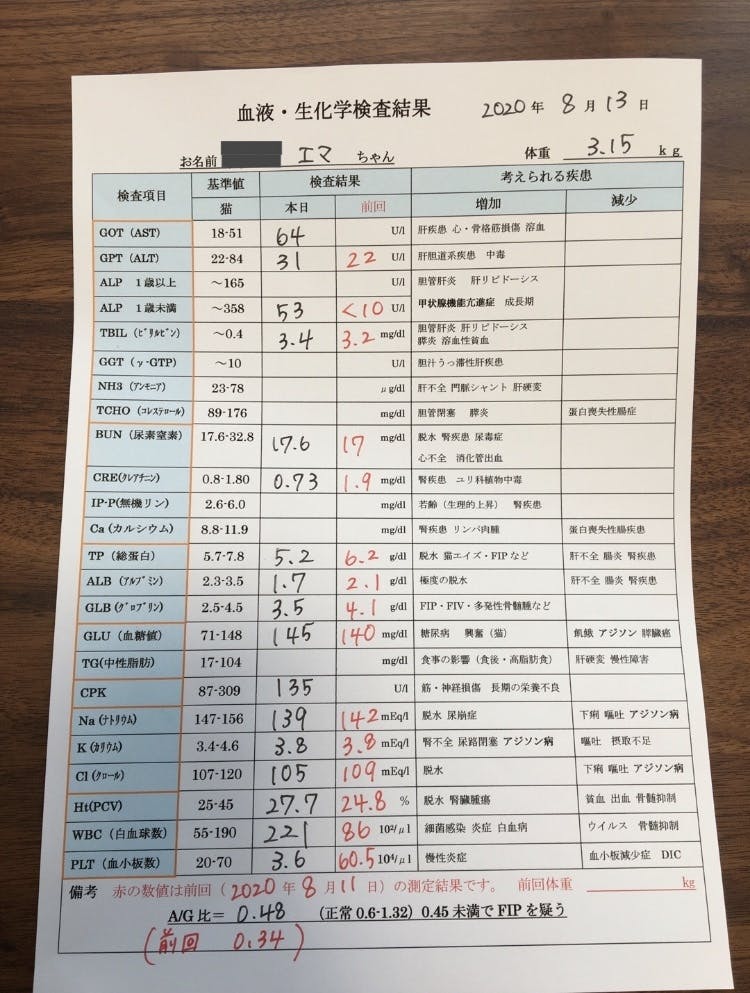 血液・生化学検査結果 2020年 8月13日
お名前 エマ ちゃん 体重 3.15 kg
検査項目 基準値 検査結果 考えられる疾患
猫 本日 前回 増加 減少
GOT (AST) 18-51 64 U/l 肝疾患 心・骨格筋損傷 溶血
GPT (ALT) 22-84 31 22 U/l 肝胆道系疾患 中毒
ALP 1歳以上 ～165 U/l 胆管肝炎 肝リピドーシス
ALP 1歳未満 ～358 53 <10 U/l 甲状腺機能亢進症 成長期
TBIL (ビリルビン) ～0.4 3.4 3.2 mg/dl 胆管肝炎 肝リピドーシス
膵炎 溶血性貧血
GGT (γ-GTP) ～10 U/l 胆汁うっ滞性肝疾患
NH3 (アンモニア) 23-78 μg/dl 肝不全 門脈シャント 肝硬変
TCHO (コレステロール) 89-176 mg/dl 胆管閉塞 膵炎 蛋白喪失性腸症
BUN (尿素窒素) 17.6-32.8 17.6 17 mg/dl 脱水 腎疾患 尿毒症
心不全 消化管出血
CRE(クレアチニン) 0.8-1.80 0.73 1.9 mg/dl 腎疾患 ユリ科植物中毒
IP-P(無機リン) 2.6-6.0 mg/dl 若齢（生理的上昇） 腎疾患
Ca (カルシウム) 8.8-11.9 mg/dl 腎疾患 リンパ肉腫 蛋白喪失性腸疾患
TP (総蛋白) 5.7-7.8 5.2 6.2 g/dl 脱水 猫エイズ・FIP など 肝不全 腸炎 腎疾患
ALB (アルブミン) 2.3-3.5 1.7 2.1 g/dl 極度の脱水 肝不全 腸炎 腎疾患
GLB (グロブリン) 2.5-4.5 3.5 4.1 g/dl FIP・FIV・多発性骨髄腫など
GLU (血糖値) 71-148 145 140 mg/dl 糖尿病 興奮（猫） 飢餓 アジソン 膵臓癌
TG(中性脂肪) 17-104 mg/dl 食事の影響（食後・高脂肪食） 肝硬変 慢性障害
CPK 87-309 135 U/l 筋・神経損傷 長期の栄養不良
Na (ナトリウム) 147-156 139 142 mEq/l 脱水 尿崩症 下痢 嘔吐 アジソン病
K (カリウム) 3.4-4.6 3.8 3.8 mEq/l 腎不全 尿路閉塞 アジソン病 嘔吐 摂取不足
Cl (クロール) 107-120 105 109 mEq/l 脱水 下痢 嘔吐 アジソン病
Ht(PCV) 25-45 27.7 24.8 % 脱水 腎臓腫瘍 貧血 出血 骨髄抑制
WBC (白血球数) 55-190 221 86 10²/μl 細菌感染 炎症 白血病 ウイルス 骨髄抑制
PLT (血小板数) 20-70 3.6 60.5 10⁴/μl 慢性炎症 血小板減少症 DIC
備考 赤の数値は前回（2020年8月11日）の測定結果です。 前回体重 kg
A/G 比＝ 0.48 （正常 0.6-1.32）0.45 未満で FIP を疑う
(前回 0.34)